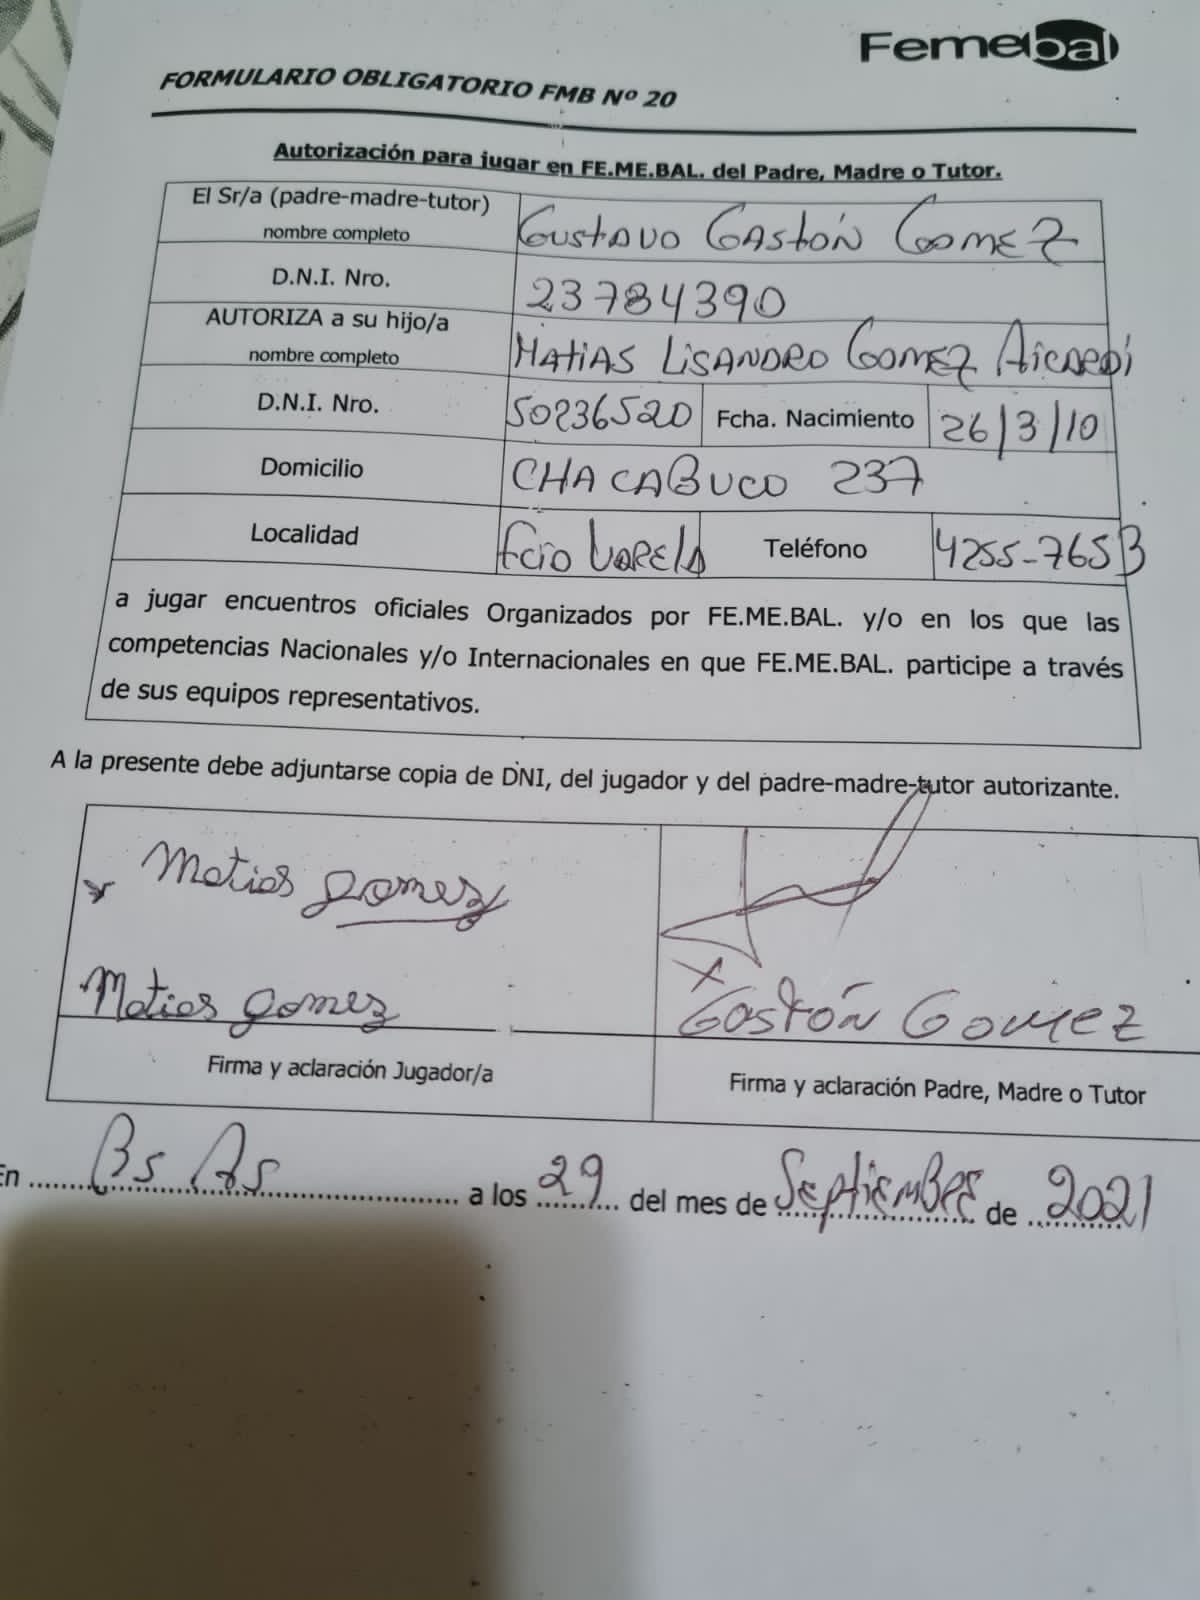 Femebal
FORMULARIO OBLIGATORIO FMB Nº 20
Autorización para jugar en FE.ME.BAL. del Padre, Madre o Tutor.
El Sr/a (padre-madre-tutor)
nombre completo
GUSTAVO GASTÓN GOMEZ
D.N.I. Nro.
23784390
AUTORIZA a su hijo/a
nombre completo
MATIAS LISANDRO GOMEZ AICARDI
D.N.I. Nro.
50236520
Fcha. Nacimiento
26/3/10
Domicilio
CHACABUCO 237
Localidad
Fcio VARELA
Teléfono
4255-7653
a jugar encuentros oficiales Organizados por FE.ME.BAL. y/o en los que las
competencias Nacionales y/o Internacionales en que FE.ME.BAL. participe a través
de sus equipos representativos.
A la presente debe adjuntarse copia de DNI, del jugador y del padre-madre-tutor autorizante.
Matias gomez
Matias gomez
X
Gastón Gomez
Firma y aclaración Jugador/a
Firma y aclaración Padre, Madre o Tutor
En Bs As a los 29 del mes de Septiembre de 2021